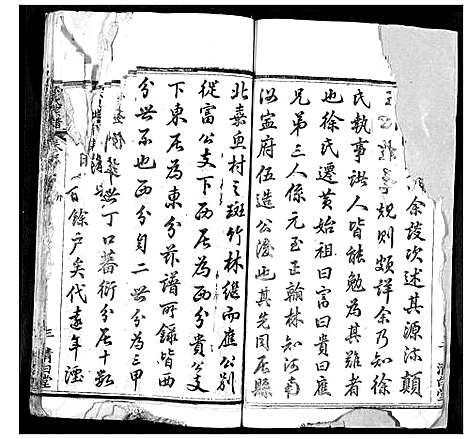 余談次述其源派顛
規則頗詳余乃知徐
氏執事諸人皆能勉為其難者
也徐氏遷黃始祖曰富曰貴曰應
兄弟三人係元至正翰林知河南
汝寧府伍造公後也其先同居縣
北嘉魚村之斑竹林繼而應公別
從富公支下西居為西分貴公支
下東居為東分茲譜所錄皆西
分世系也西分自二世分為三甲
世丁口蕃衍分居十數
百餘戶矣代遠年湮
三 清白堂
清白堂